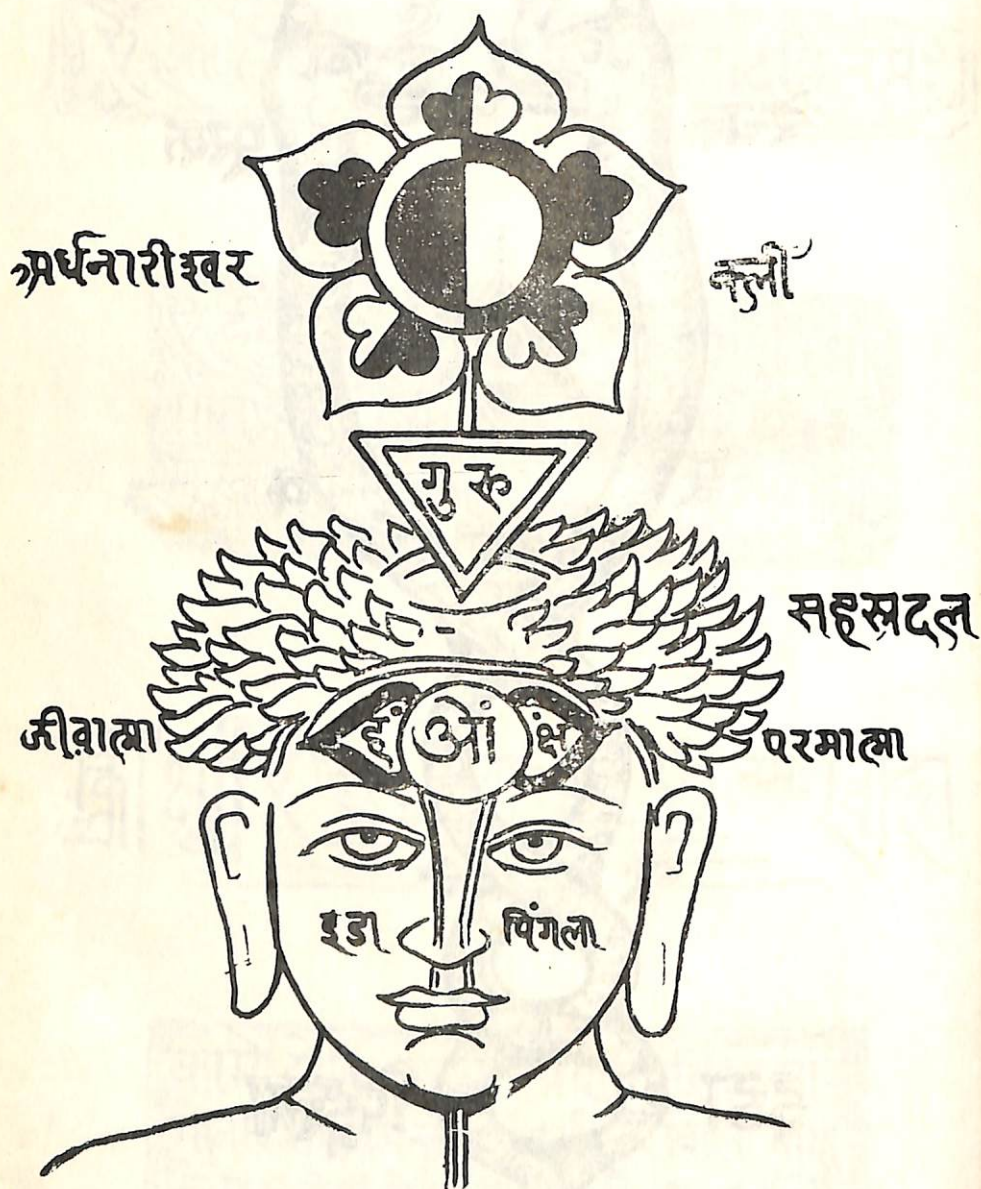 अर्धनारीश्वर
क्लीं
गुरू
सहस्रदल
जीवात्मा
हं आं क्षं
परमात्मा
इडा पिंगला